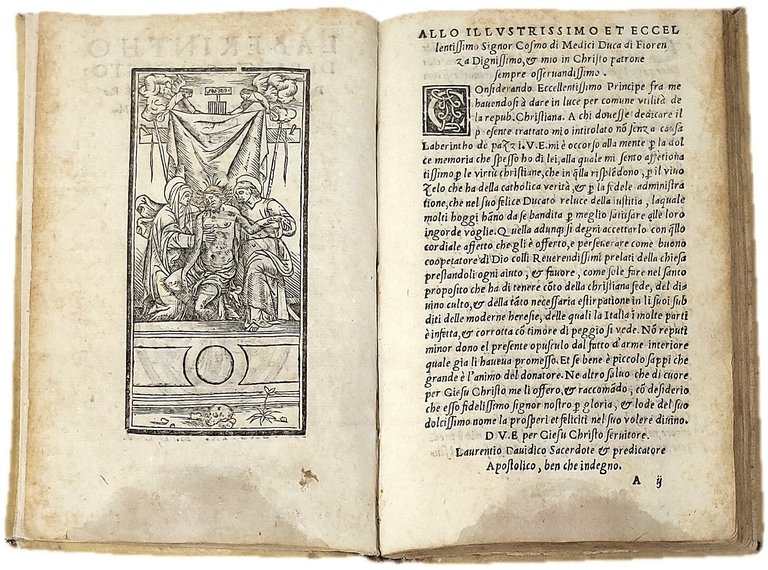 ALLO ILLVSTRISSIMO ET ECCEL
lentissimo Signor Cosmo di Medici Duca di Fioren
za Dignissimo, & mio in Christo patrone
sempre osseruandissimo.
COnsiderando Eccellentissimo Principe fra me
hauendosi à dare in luce per comune vtilità de
la repub. Christiana. A chi douesse dedicare il
p̄sente trattato mio intitolato nō senza causa
Laberintho de pazzi. V.E. mi è occorso alla mente p̄ la dol
ce memoria che spesso ho di lei, alla quale mi sento affetiona
tissimo p̄ le virtù christiane, che in q̄lla risplēdono, p̄ il viuo
zelo che ha della catholica verità, & p̄ la fedele administra
tione, che nel suo felice Ducato reluce della iustitia, laquale
molti hoggi hāno da se bandita p̄ meglio satisfare alle loro
ingorde voglie. Quella adunq; si degni accettarlo con q̄llo
cordiale affetto che gli è offerto, e perseuerare come buono
coopetatore di Dio colli Reuerendissimi prelati della chiesa
prestandoli ogni aiuto, & fauore, come sole fare nel santo
proposito che ha di tenere cōto della christiana fede, del di
uino culto, & della tāto necessaria estirpatione in li suoi sub
diti delle moderne heresie, delle quali la Italia ī molte parti
è infetta, & corrotta cō timore di peggio si vede. Nō reputi
minor dono el presente opusculo dal futto d'arme interiore
quale gia li haueua promesso. Et se bene è piccolo sappi che
grande è l'animo del donatore. Ne altro saluo che di cuore
per Giesu Christo me li offero, & raccomādo, cō desiderio
che esso fidelissimo signor nostro p̄ gloria, & lode del suo
dolcissimo nome la prosperi et feliciti nel suo volere diuino.
D.V.E per Giesu Christo seruitore.
Laurentio Dauidico Sacerdote & predicatore
Apostolico, ben che indegno.
A ij